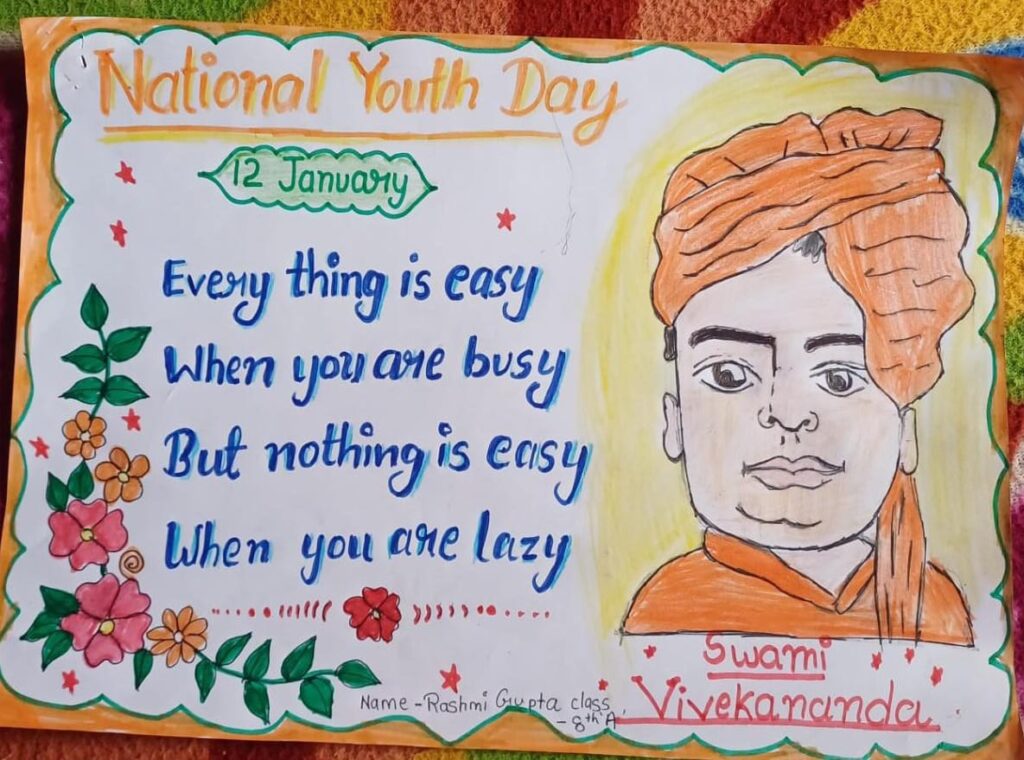 National Youth Day
12 January
Every thing is easy
When you are busy
But nothing is easy
When you are lazy
Swami
Vivekananda
Name - Rashmi Gupta class
- 8th A